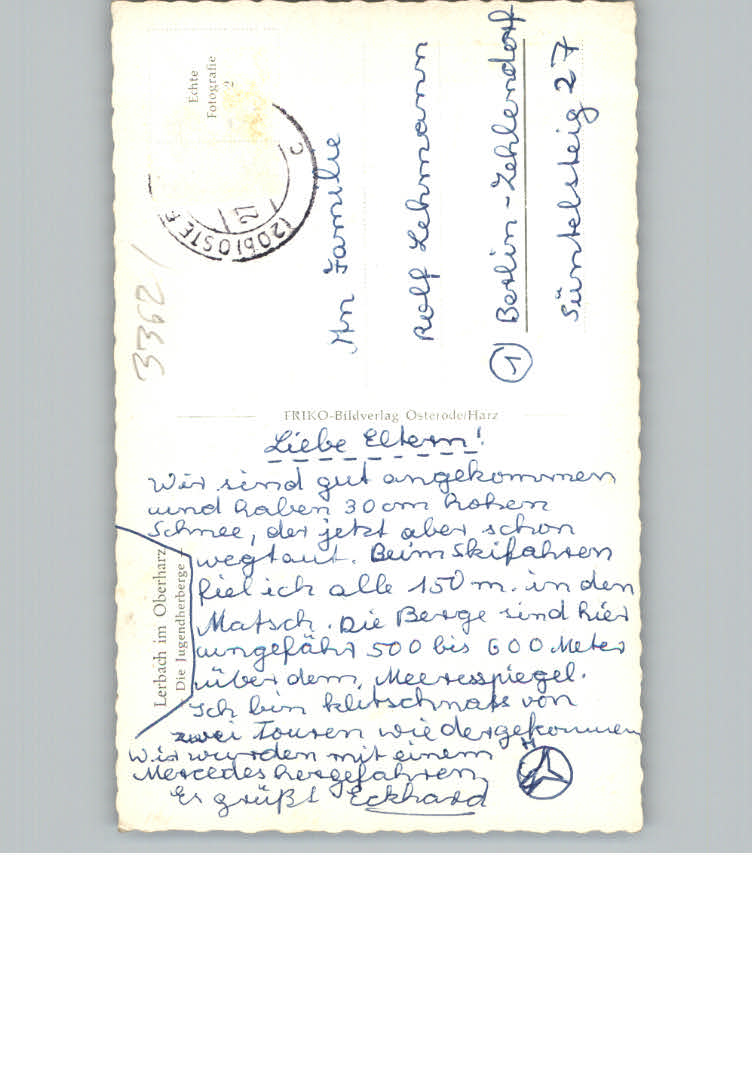 Echte
Fotografie
2
(20b) OSTE
27
c
3362/
An Familie
Rolf Lehmann
(1) Berlin-Zehlendorf
Süntelsteig 27
FRIKO-Bildverlag Osterode/Harz
Liebe Eltern!
Wir sind gut angekommen
und haben 30 cm hohen
Schnee, der jetzt aber schon
wegtaut. Beim Skifahren
fiel ich alle 150 m. in den
Matsch. Die Berge sind hier
ungefähr 500 bis 600 Meter
über dem Meeresspiegel.
Ich bin klitschnaß von
zwei Touren wiedergekommen
Wir wurden mit einem
Mercedes hergefahren.
Es grüßt Eckhard
Lerbach im Oberharz
Die Jugendherberge